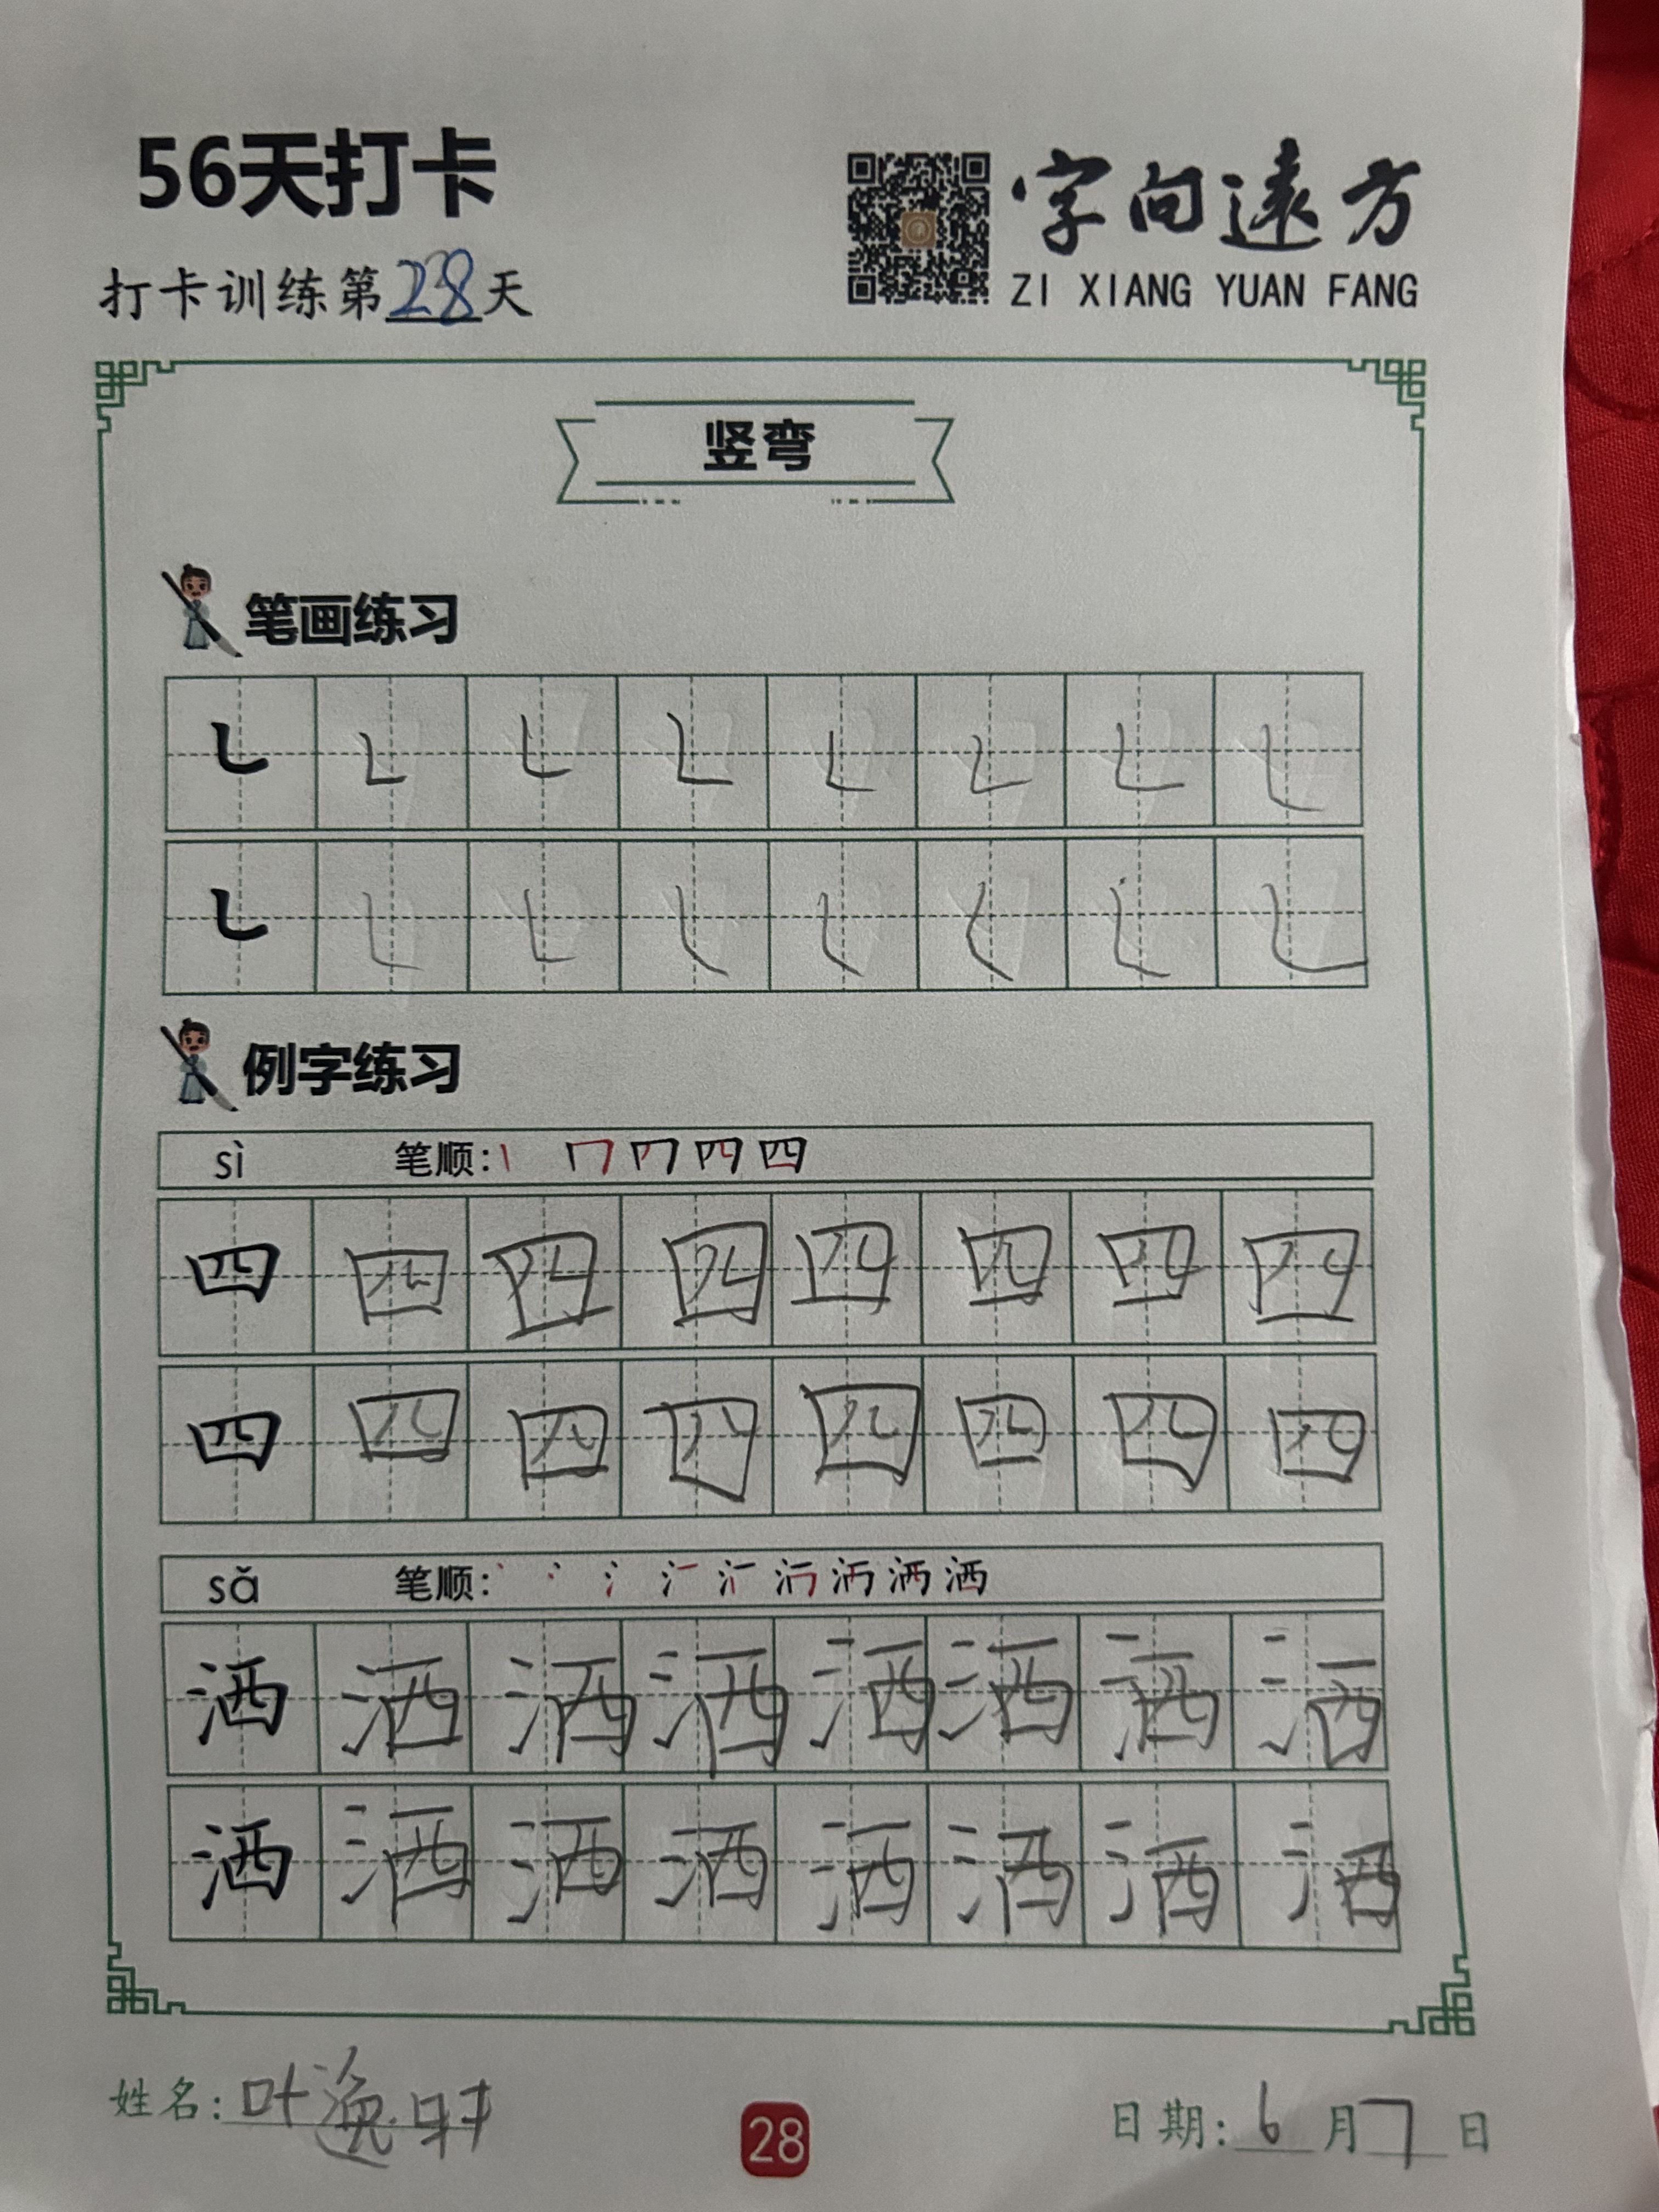 56天打卡
字向遠方
打卡训练第28天
ZI XIANG YUAN FANG
竖弯
笔画练习
例字练习
sì 笔顺:
四 四 四 四 四 四 四 四
四 四 四 四 四 四 四 四
sǎ 笔顺:
洒 洒 洒 洒 洒 洒 洒 洒
洒 洒 洒 洒 洒 洒 洒 洒
姓名: 叶逸
28
日期: 6月7日